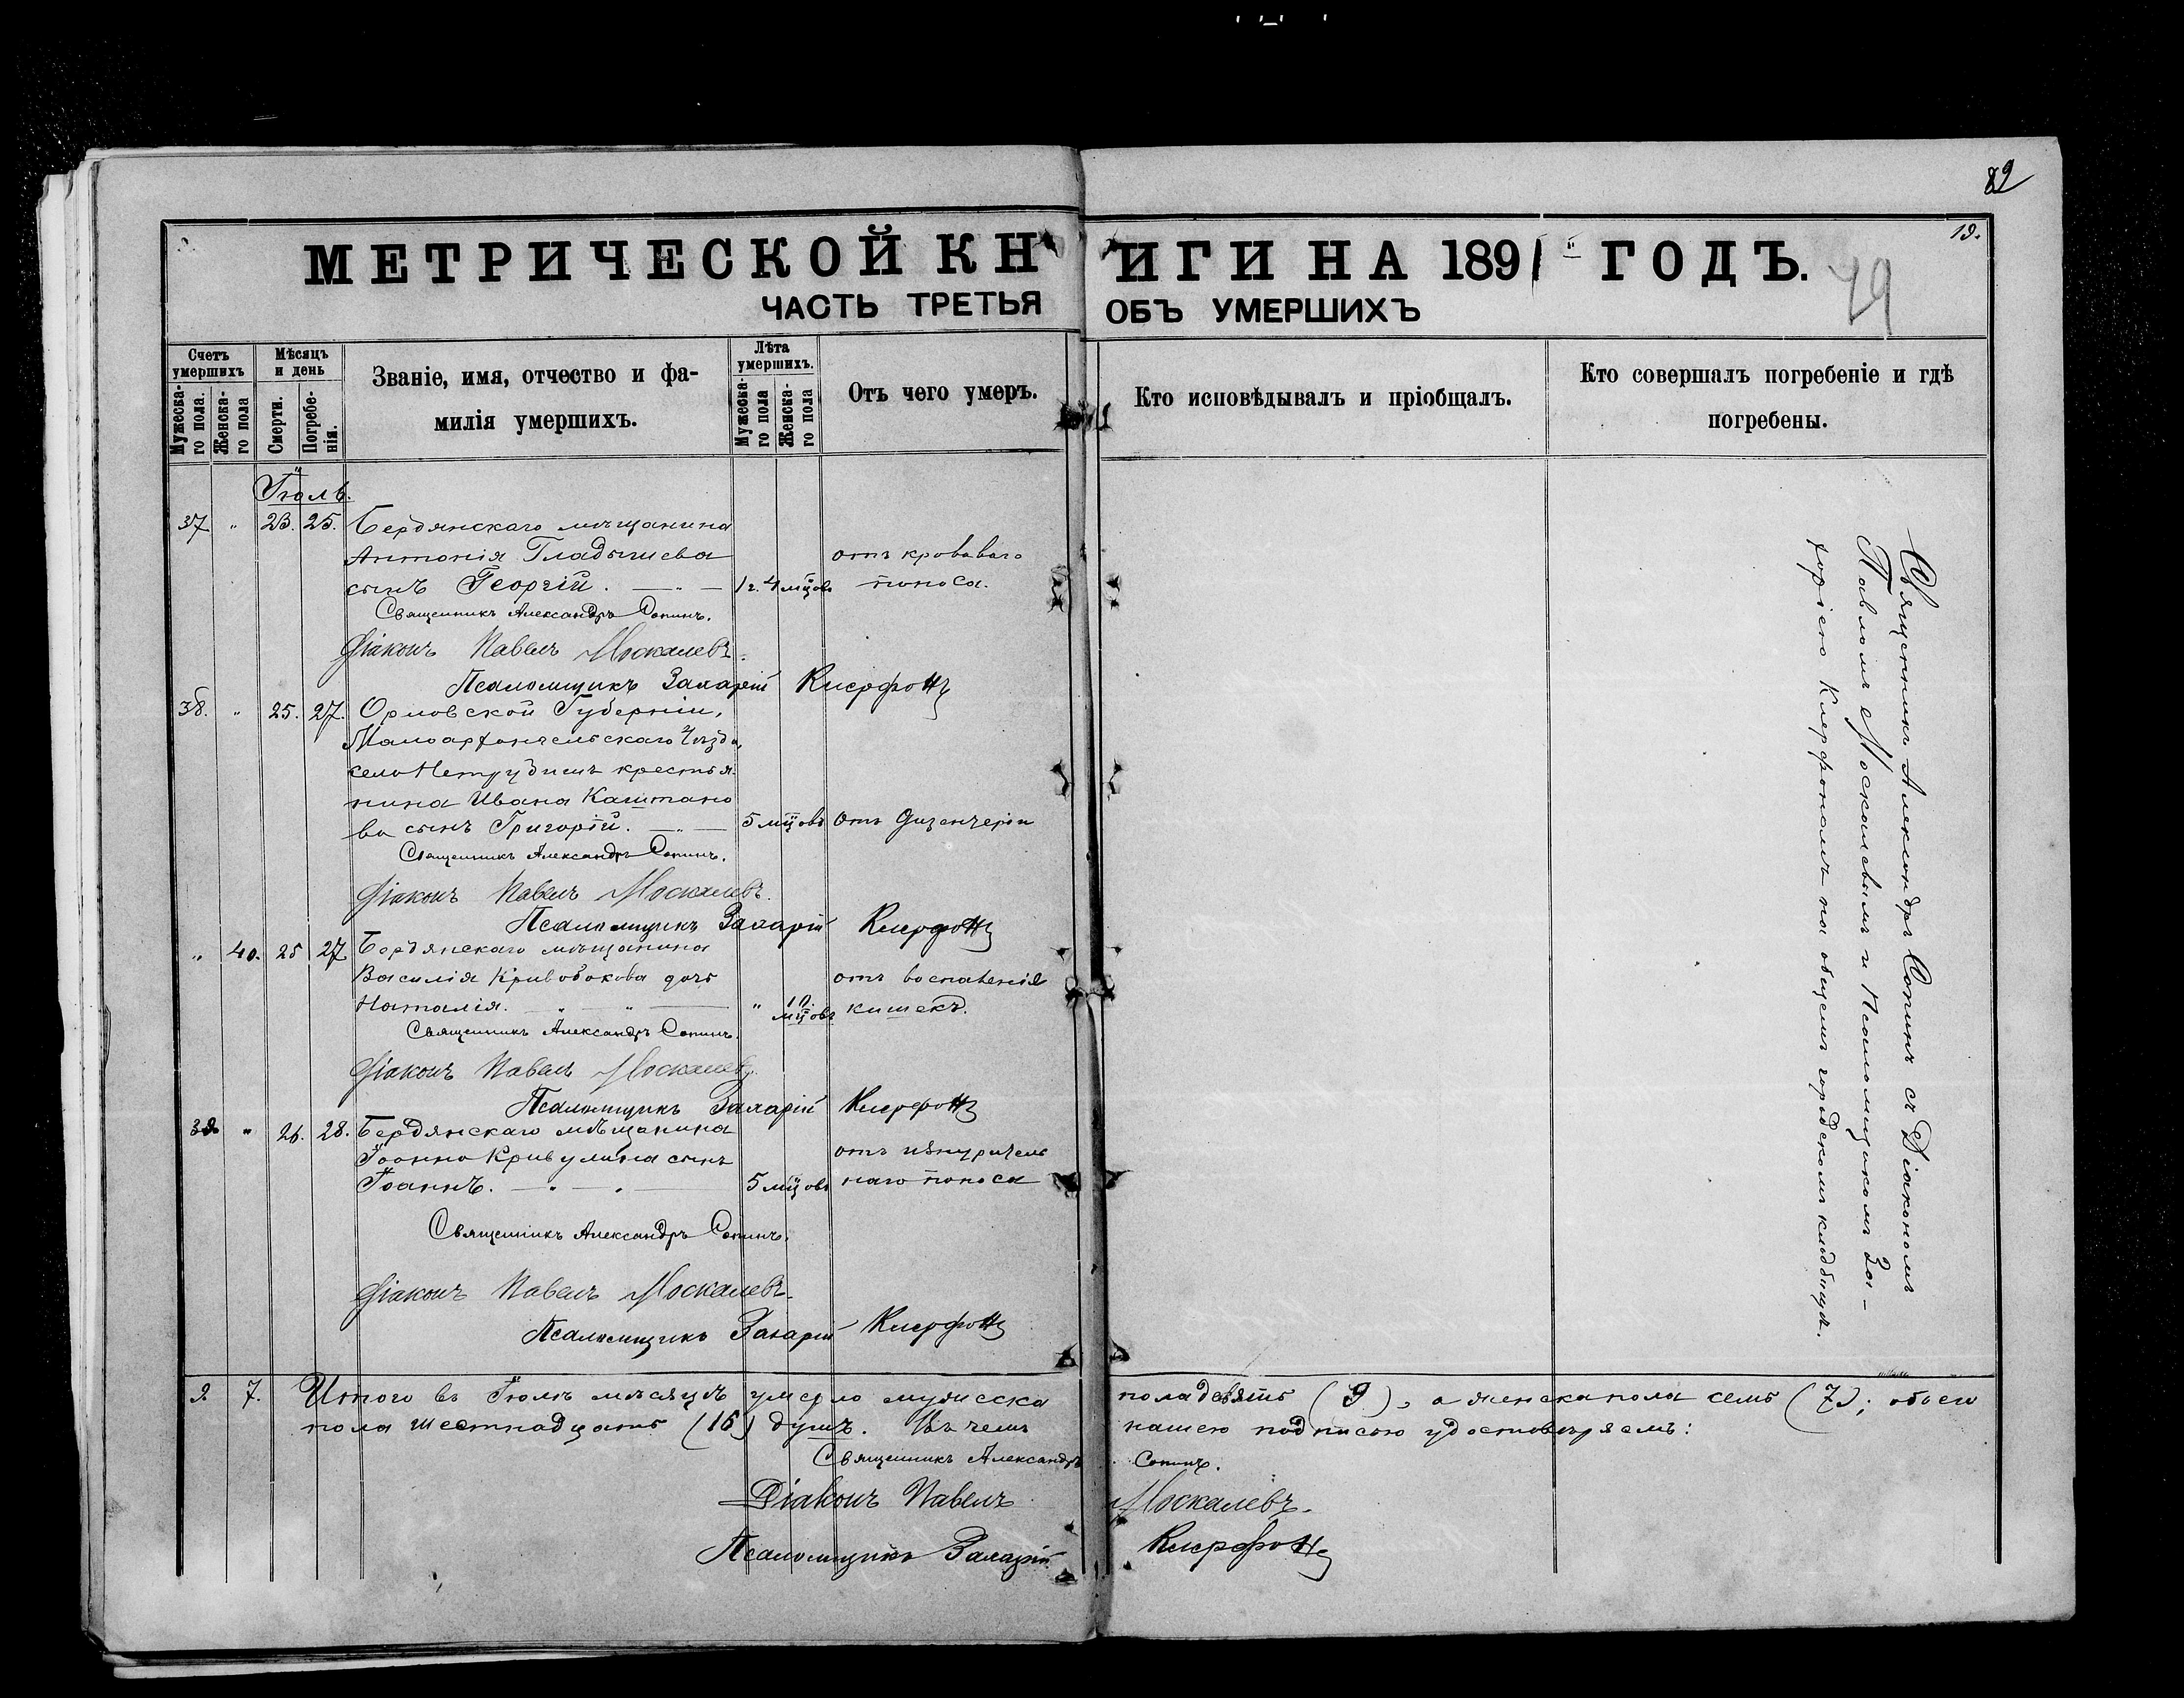 82
19.
МЕТРИЧЕСКОЙ КНИГИ НА 1891 ГОДЪ.
79
ЧАСТЬ ТРЕТЬЯ ОБЪ УМЕРШИХЪ
Счетъ умершихъ
Мужеска-го пола.
Женска-го пола
Мѣсяцъ и день
Смерти.
Погребе-нія.
Званіе, имя, отчество и фа-
милія умершихъ.
Лѣта умершихъ.
Мужеска-го пола
Женска-го пола
Отъ чего умеръ.
Кто исповѣдывалъ и пріобщалъ.
Кто совершалъ погребеніе и гдѣ
погребены.
Іюль.
37 " 23. 25. Бердянскаго мѣщанина
Антонія Гладышева отъ кроваваго
сынъ Георгій. 1 г. 4 мцовъ поноса.
Священникъ Александръ Сопинъ.
Діаконъ Павелъ Москалевъ.
Псаломщикъ Захарій Ксерфонъ
38. " 25. 27. Орловской Губерніи,
Малоархангельскаго Уѣзда,
село Нетрубижъ крестья
нина Ивана Каштано
ва сынъ Григорій. 5 мцовъ Отъ дизентеріи
Священникъ Александръ Сопинъ.
Діаконъ Павелъ Москалевъ.
Псаломщикъ Захарій Ксерфонъ
" 40. 25 27 Бердянскаго мѣщанина
Василія Кривобокова дочь отъ воспаленія
Наталія. " мцовъ кишекъ.
Священникъ Александръ Сопинъ.
Діаконъ Павелъ Москалевъ.
Псаломщикъ Захарій Ксерфонъ
39. " 26. 28. Бердянскаго мѣщанина
Іоанна Кривулина сынъ отъ изнуритель
Іоаннъ. 5 мцовъ наго поноса
Священникъ Александръ Сопинъ.
Діаконъ Павелъ Москалевъ.
Псаломщикъ Захарій Ксерфонъ
Священникъ Александръ Сопинъ съ Діакономъ
Павломъ Москалевымъ и Псаломщикомъ За-
харіею Ксерфономъ на общемъ городскомъ кладбищѣ.
9 7. Итого въ Іюлѣ мѣсяцѣ умерло мужеска пола девять (9), а женска пола семь (7); обоего
пола шестнадцать (16) душъ. Въ чемъ нашею подписью удостовѣряемъ:
Священникъ Александръ Сопинъ.
Діаконъ Павелъ Москалевъ.
Псаломщикъ Захарій Ксерфонъ